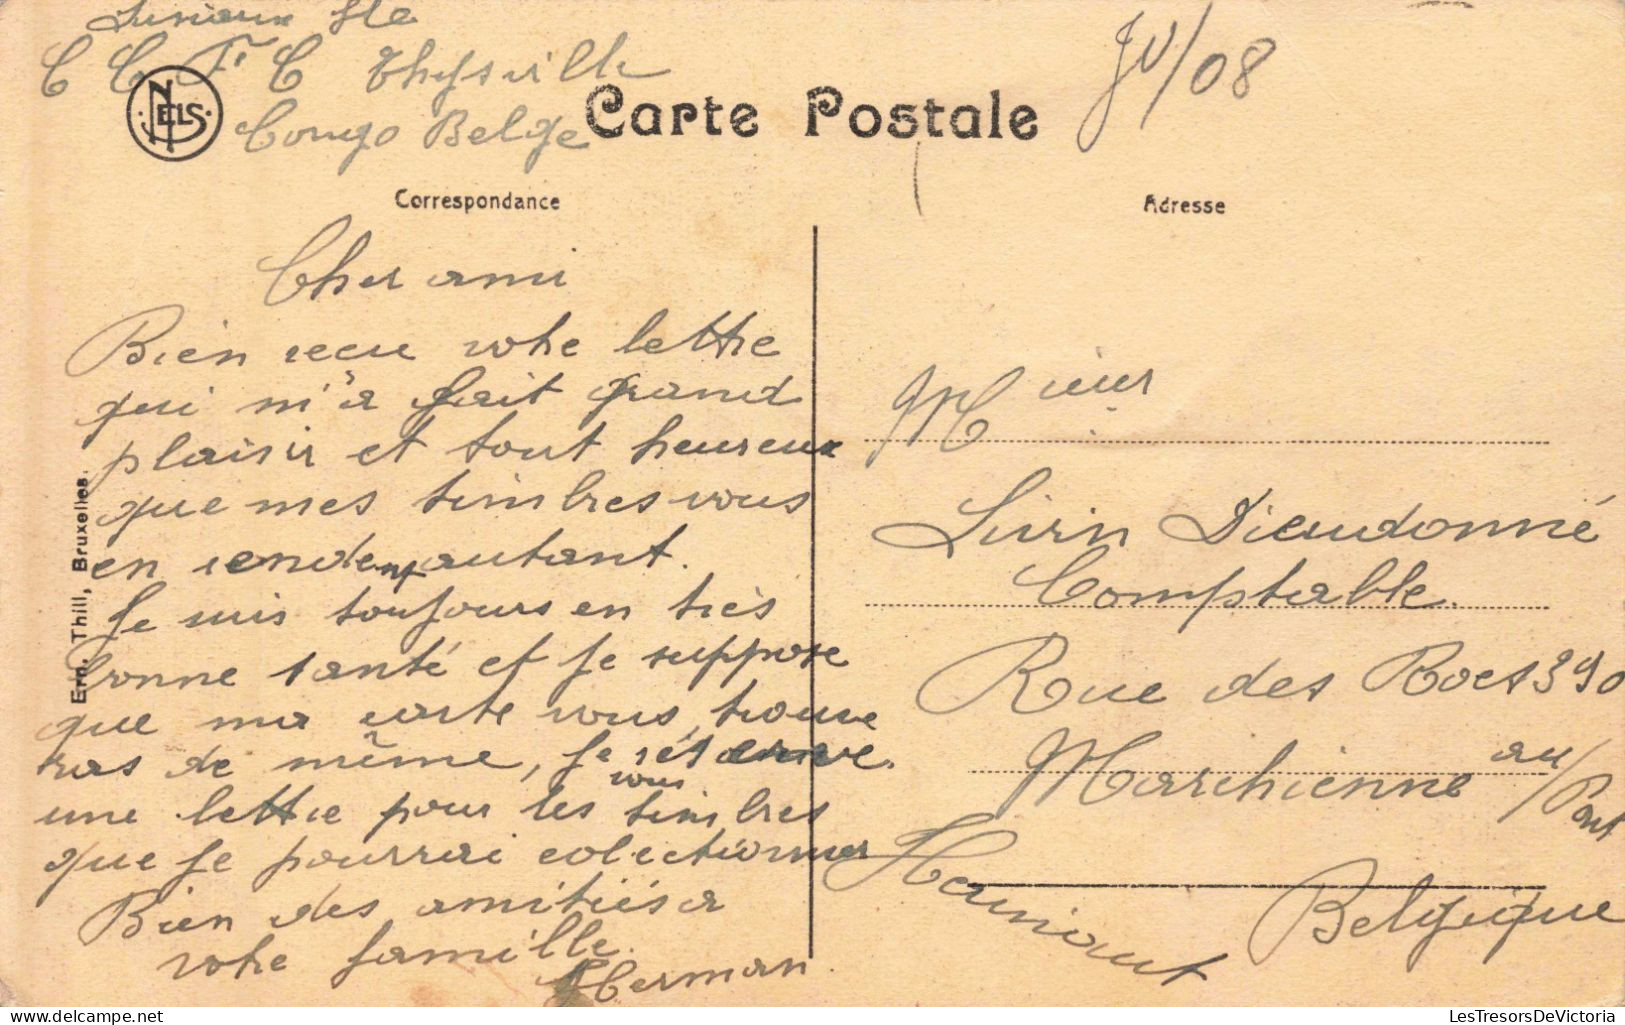 C C F C Thysville
Congo Belge
NELS
Carte Postale
JV/08
Correspondance
Adresse
Cher ami
Bien reçu votre lettre
qui m'a fait grand
plaisir et tout heureux
que mes timbres vous
en rendent autant.
Je suis toujours en très
bonne santé et je suppose
que ma carte vous trouve
ras de même, je réserve
une lettre pour les vous timbres
que je pourrai colectionner
Bien des amitiés a
votre famille.
Herman.
Ern. Thill, Bruxelles.
Mr ieur
Livin Dieudonné
Comptable.
Rue des Roets 390
Marchienne au/Pont
Hainaut
Belgique
LesTresorsDeVictoria